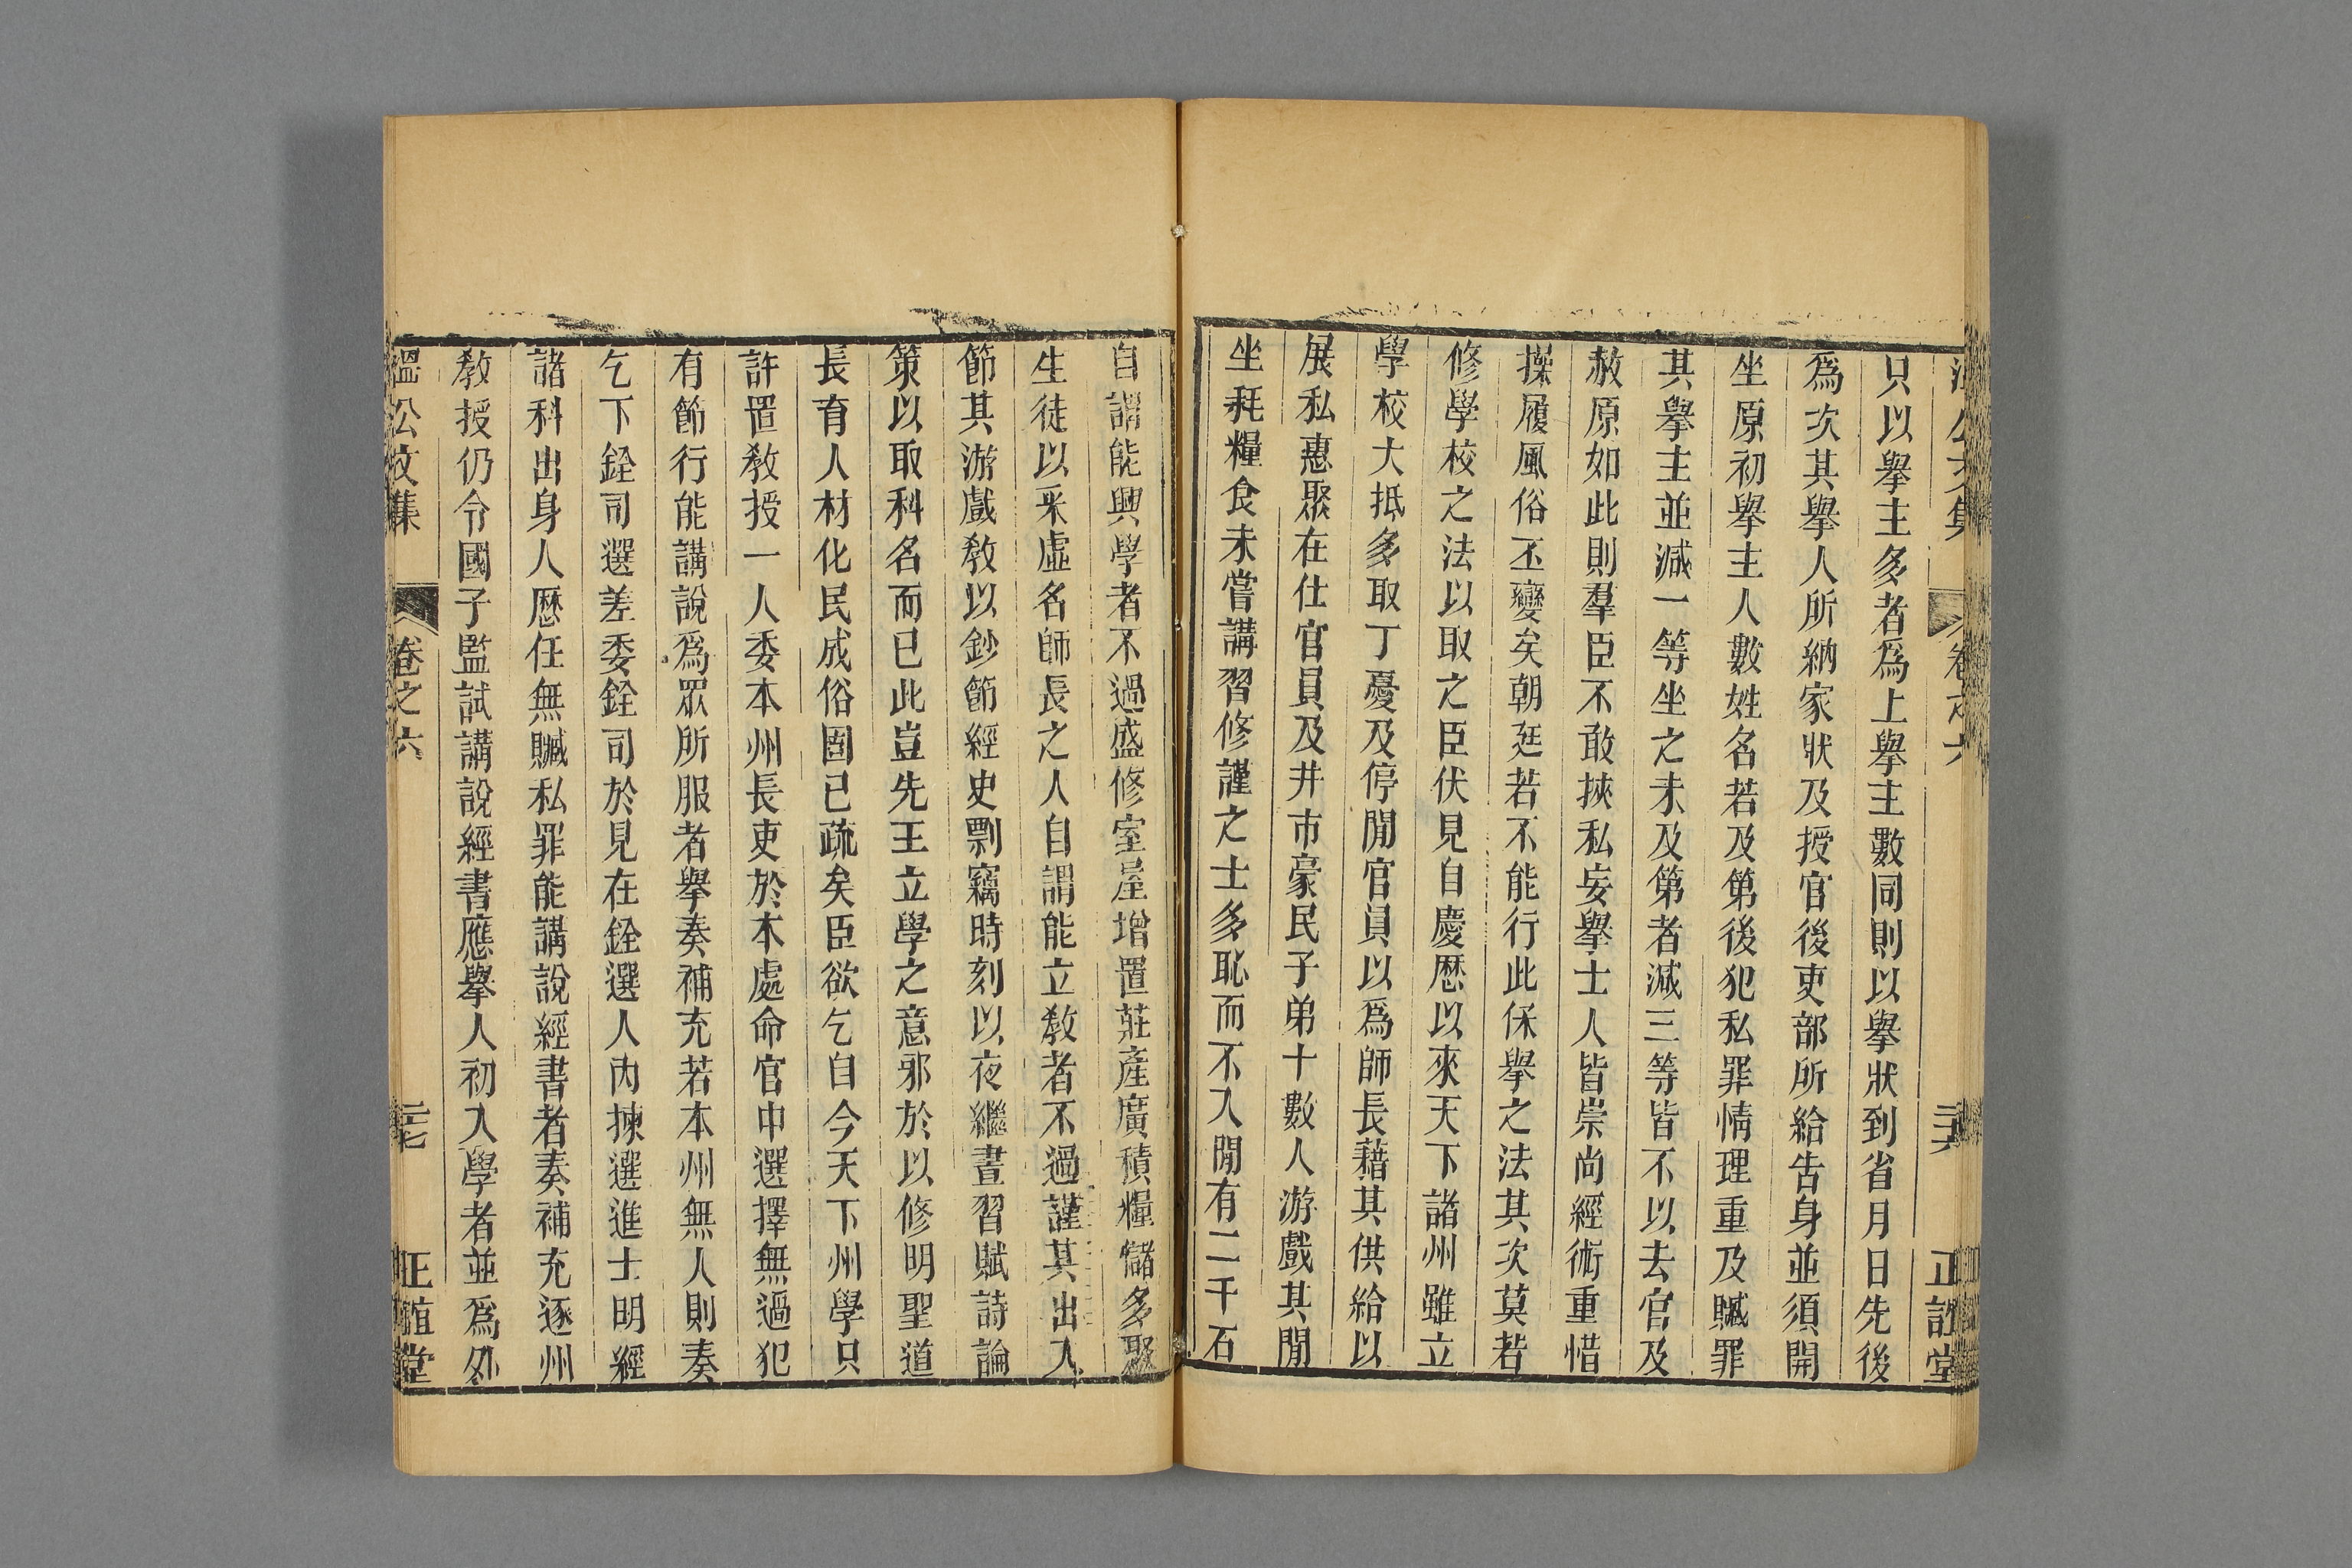 溫公文集 卷之六 三六 正誼堂
只以舉主多者爲上舉主數同則以舉狀到省月日先後
爲次其舉人所納家狀及授官後吏部所給告身並須開
坐原初舉主人數姓名若及第後犯私罪情理重及贓罪
其舉主並減一等坐之未及第者減三等皆不以去官及
赦原如此則羣臣不敢挾私妄舉士人皆崇尚經術重惜
操履風俗丕變矣朝廷若不能行此保舉之法其次莫若
修學校之法以取之臣伏見自慶曆以來天下諸州雖立
學校大抵多取丁憂及停閒官員以爲師長藉其供給以
展私惠聚在仕官員及井市豪民子弟十數人游戲其閒
坐耗糧食未嘗講習修謹之士多恥而不入閒有二千石
自謂能興學者不過盛修室屋增置莊產廣積糧儲多聚
生徒以采虛名師長之人自謂能立教者不過謹其出入
節其游戲教以鈔節經史剽竊時刻以夜繼晝習賦詩論
策以取科名而已此豈先王立學之意邪於以修明聖道
長育人材化民成俗固已疏矣臣欲乞自今天下州學只
許置教授一人委本州長吏於本處命官中選擇無過犯
有節行能講說爲眾所服者舉奏補充若本州無人則奏
乞下銓司選差委銓司於見在銓選人內揀選進士明經
諸科出身人歷任無贓私罪能講說經書者奏補充逐州
教授仍令國子監試講說經書應舉人初入學者並爲外
溫公文集 卷之六 三七 正誼堂